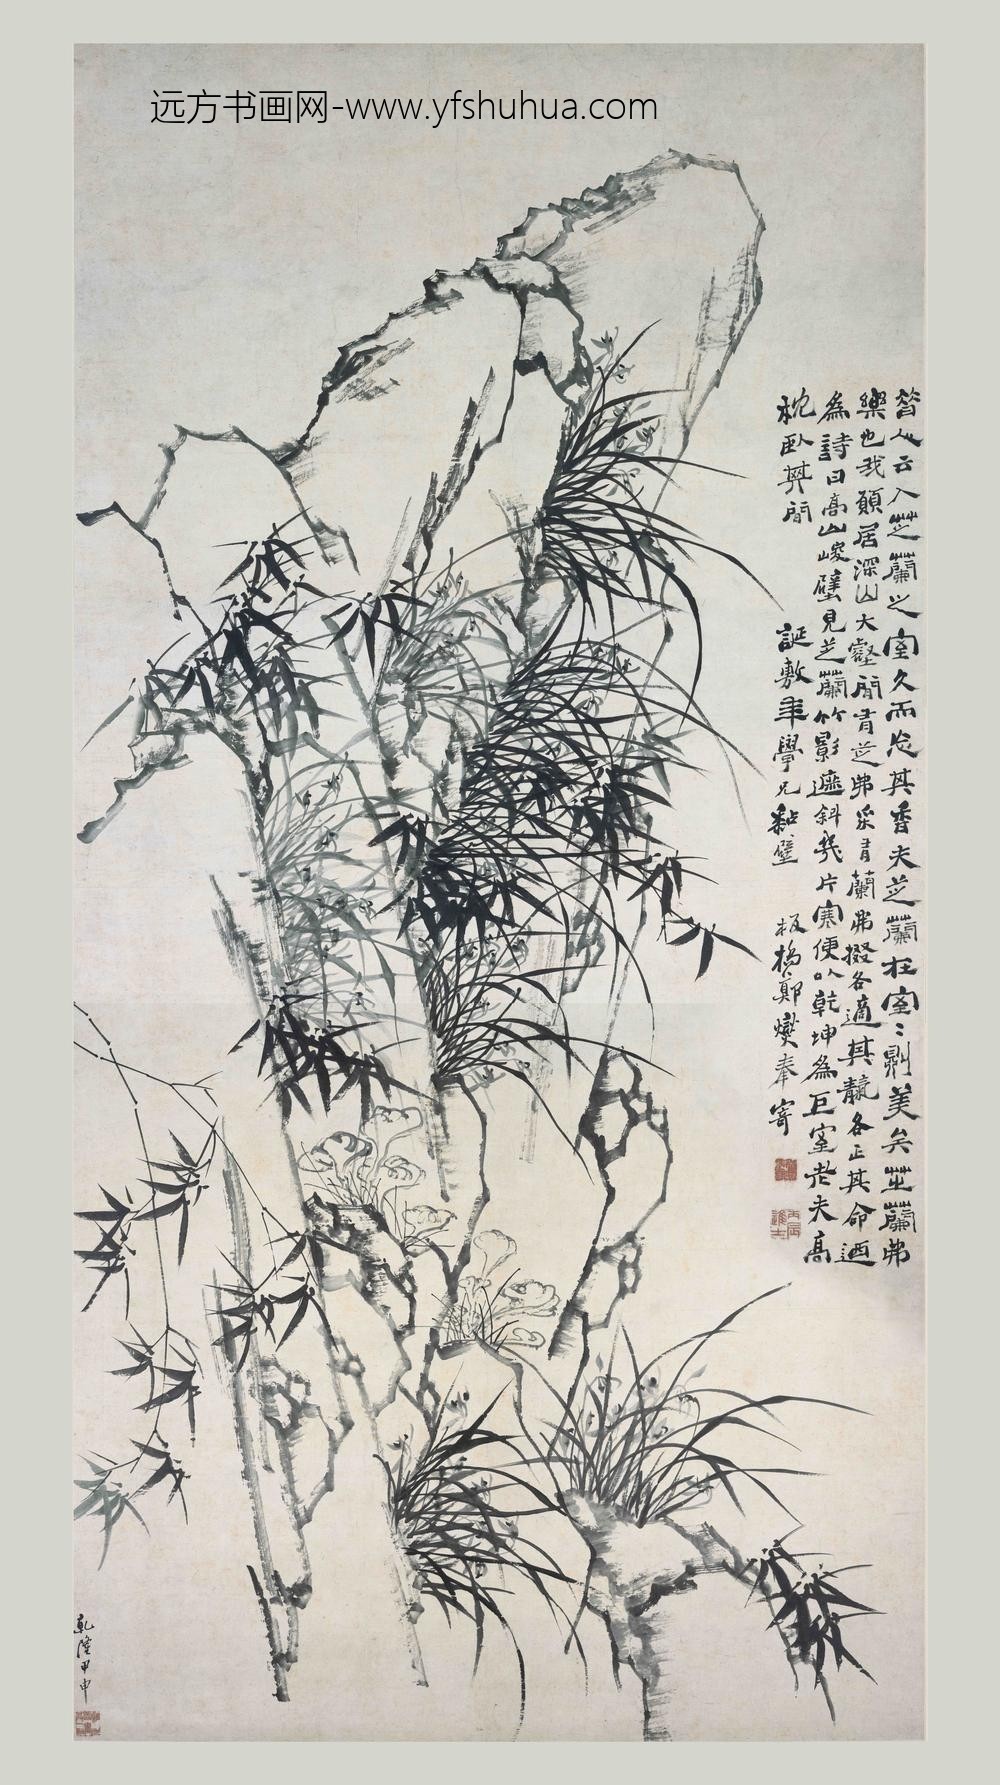 远方书画网-www.yfshuhua.com
昔人云入芝蘭之室久而忘其香夫芝蘭在室室則美矣芝蘭弗
樂也我願居深山大壑間有芝弗采有蘭弗掇各適其天各正其命迺
為詩曰高山峻壁見芝蘭竹影遮斜幾片寒便以乾坤為巨室老夫高
枕臥其間
誕敷年學兄黏壁
板橋鄭燮奉寄
丙辰進士
乾隆甲申